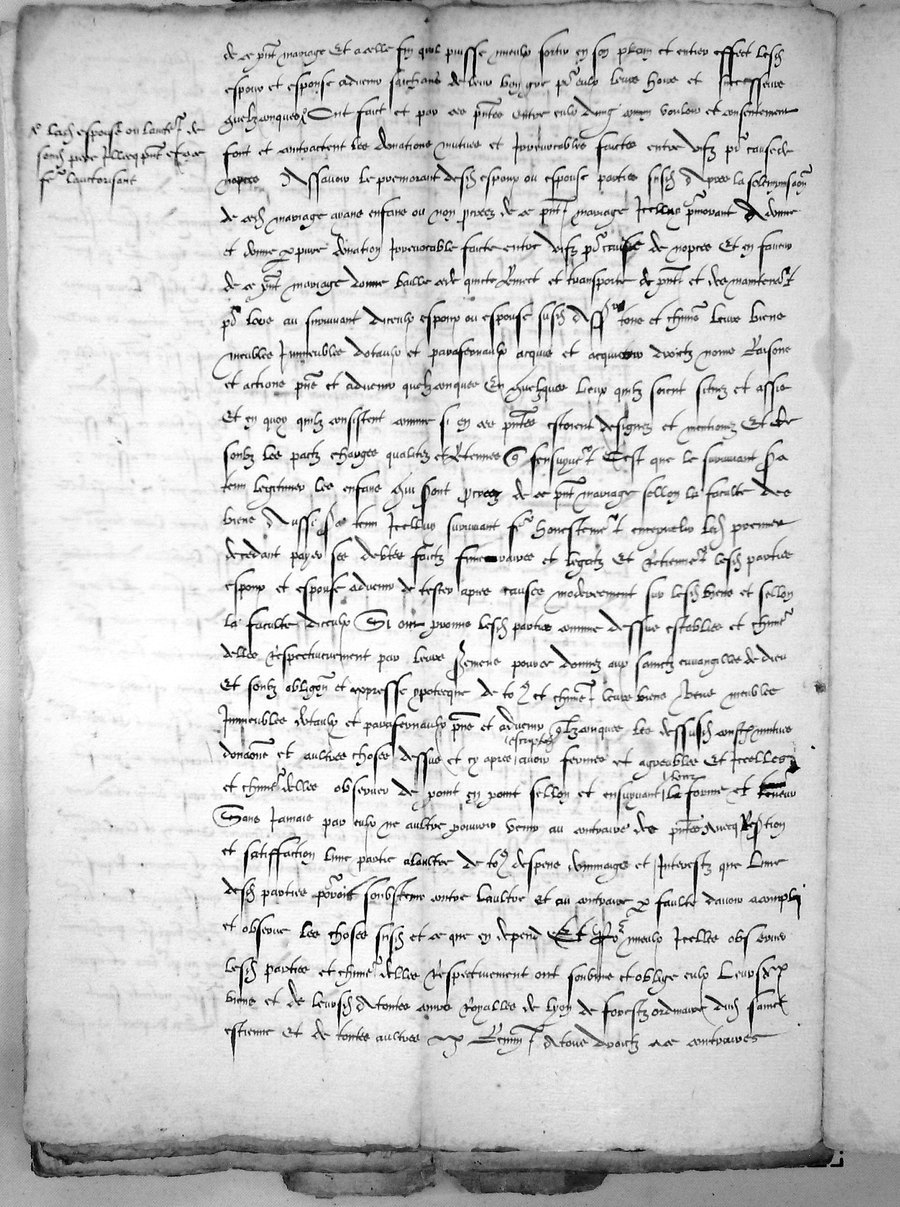 de ce pnt mariage Et a celle fin quil puisse mieulx sortir en son plain et entier effect lesd
espoux et espouse advenir saichans de leur bon gre pr eulx leurs hoirs et successeurs
quelzconques Ont faict et par ces pntes entre eulx dung comun vouloir et consentement
x lad espouse ou laucte de
sond pere illecq pnt et ce
fe lauctorisant
font et contractent les donations mutues et irrevocables faictes entre vifz pr cause de
nopces Assavoir le premorant desd espoux ou espouse parties susd Apres la solempnisaon
de ced mariage ayans enfans ou non procrees de ce pnt mariage Icelluy pmorant A donne
et donne p pure donation irrevocable faicte entre vifz pr cause de nopces Et en faveur
de ce pnt mariage donne baille cede quicte Remect et transporte de pnt et des maintenant
pr lors au survivant diceulx espoux ou espouse susd tous et chuns leurs biens
meubles immeubles dotaulx et parafernaulx acquis et acquerir droictz noms Raisons
et actions pns et advenir quelzconques En quelques lieux quilz soient situez et assis
Et en quoy quilz consistent comme si en ces pntes estoient designez et mentionez Et ce
soubz les pactz charges qualitez et Retenues q sensuyvent Cest que le survivant sera
tenu legitimer les enfans qui sont procrees de ce pnt mariage sellon la faculte des
biens Aussi sera tenu Icelluy survivant fe honnestement ensepvelir led premier
decedant payer ses debtes faictz funerairres et legatz Et Retiennent lesd parties
espoux et espouse advenir de tester apres causes modereement sur lesd biens et sellon
la faculte diceulx Si ont promis lesd parties comme dessus establies et chune
delles Respectivement par leurs sermens pource donnez aux sainctz euvangilles de dieu
Et soubz obligon et expresse ypotecque de to et chuns leurs biens biens meubles
Immeubles dotaulx et parafernaulx pns et advenir qlzconques les dessusd mutues
donaons et aultres choses dessus et cy apres escriptes avoir fermes et agreables Et Icelles
et chune delles observer de point en point sellon et ensuyvant leur la forme et teneur
Sans Jamais par eulx ne aultre pouvoir venir au contraire des pntes Avecq Restion
et satiffaction lune partie alaultre de to despens dommaiges et interestz que lune
desd parties porroit soubstenir contre laultre Et au contraire p faulte davoir acomply
et observe les choses susd et ce que en depend Et Pr mieulx Icelles observer
lesd parties et chune delles Respectivement ont soubmis et oblige eulx Leursd
biens et de leursd A toutes cours Royalles de lyon de forestz ordinaire dud sainct
estienne Et de toutes aultres Renun A tous droictz a ce contraires